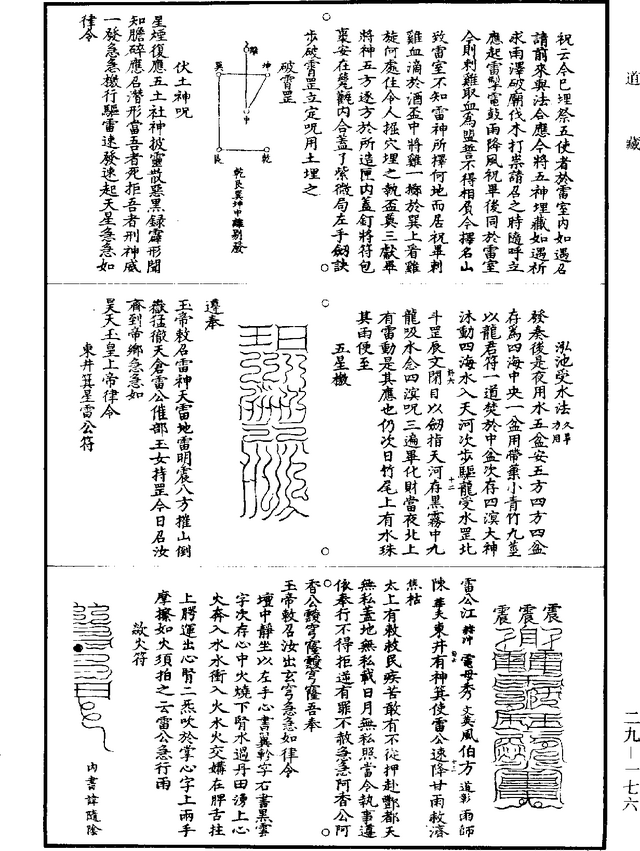 道藏
祝云今巳埋祭五使者於雷室内如遇召
請前來與法合應今將五神埋藏如遇祈
求雨澤破廟伐木打祟請召之時隨呼立
應起雷擊電鼓雨降風祝畢後同於雷室
令則刺雞取血為盟誓不得相負令擇名山
致雷室不知雷神所擇何地而居祝畢刺
雞血滴於酒盃中將雞一擲於巽上看雞
旋何處住令人掘穴埋之執盃奠三獻畢
將神五方逐方於所造匣内蓋釘將符包
裹安在甆甌内合蓋了紫微局左手劒訣
步破雷罡立定呪用土埋之
破雷罡
坤
離
巽
中
乾
艮
乾艮巽坤中離剔發
伏土神呪
星煙復應五土社神披靈散惡黑録霹形聞
知膽碎應召潛形當吾者死拒吾者刑神威
一發急急檄行驅雷速發速起天星急急如
律令
泓池受水法
發奏後是夜用水五盆安五方四方四盆
存為四海中央一盆用帶葉小青竹九莖
以龍君符一道焚於中盆次存四溟大神
沐動四海水入天河次步驅龍受水罡北
斗罡辰文閉目以劒指天河存黑霧中九
龍吸水念四溟呪三遍畢化財當夜北上
有雷動是其應也仍次日竹尾上有水珠
其雨便至
五星檄
遵奉
玉帝敕召雷神天雷地雷明震八方摧山倒
嶽猛徹天倉雷公催部玉女持罡今日召汝
齊到帝鄉急急如
昊天玉皇上帝律令
東井箕星雷公符
震
震
雷公江赫冲電母秀文英風伯方道彰雨師
陳華夫東井有神箕使雷公速降甘雨救濟
焦枯
太上有敕救民疾苦敢有不從押赴酆都天
無私蓋地無私載日月無私照當令執事遵
依奉行不得拒逆有罪不赦急急阿香公阿
香公靉穹窿靉穹窿吾奉
玉帝敕召汝出玄穹急急如律令
壇中靜坐以左手心書巽軫字右書黑雲
字次存心中火燒下腎水過丹田湧上心
火奔入水水衝入火水火交媾在脾舌拄
上腭運出心腎二炁吹於掌心字上兩手
摩擦如火須拍之云雷公急行雨
歘火符
内書諱隨除
二九—一七六